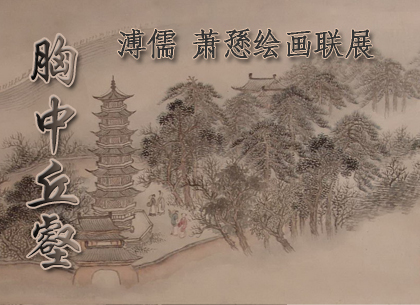 胸中丘壑
溥儒 萧愻绘画联展